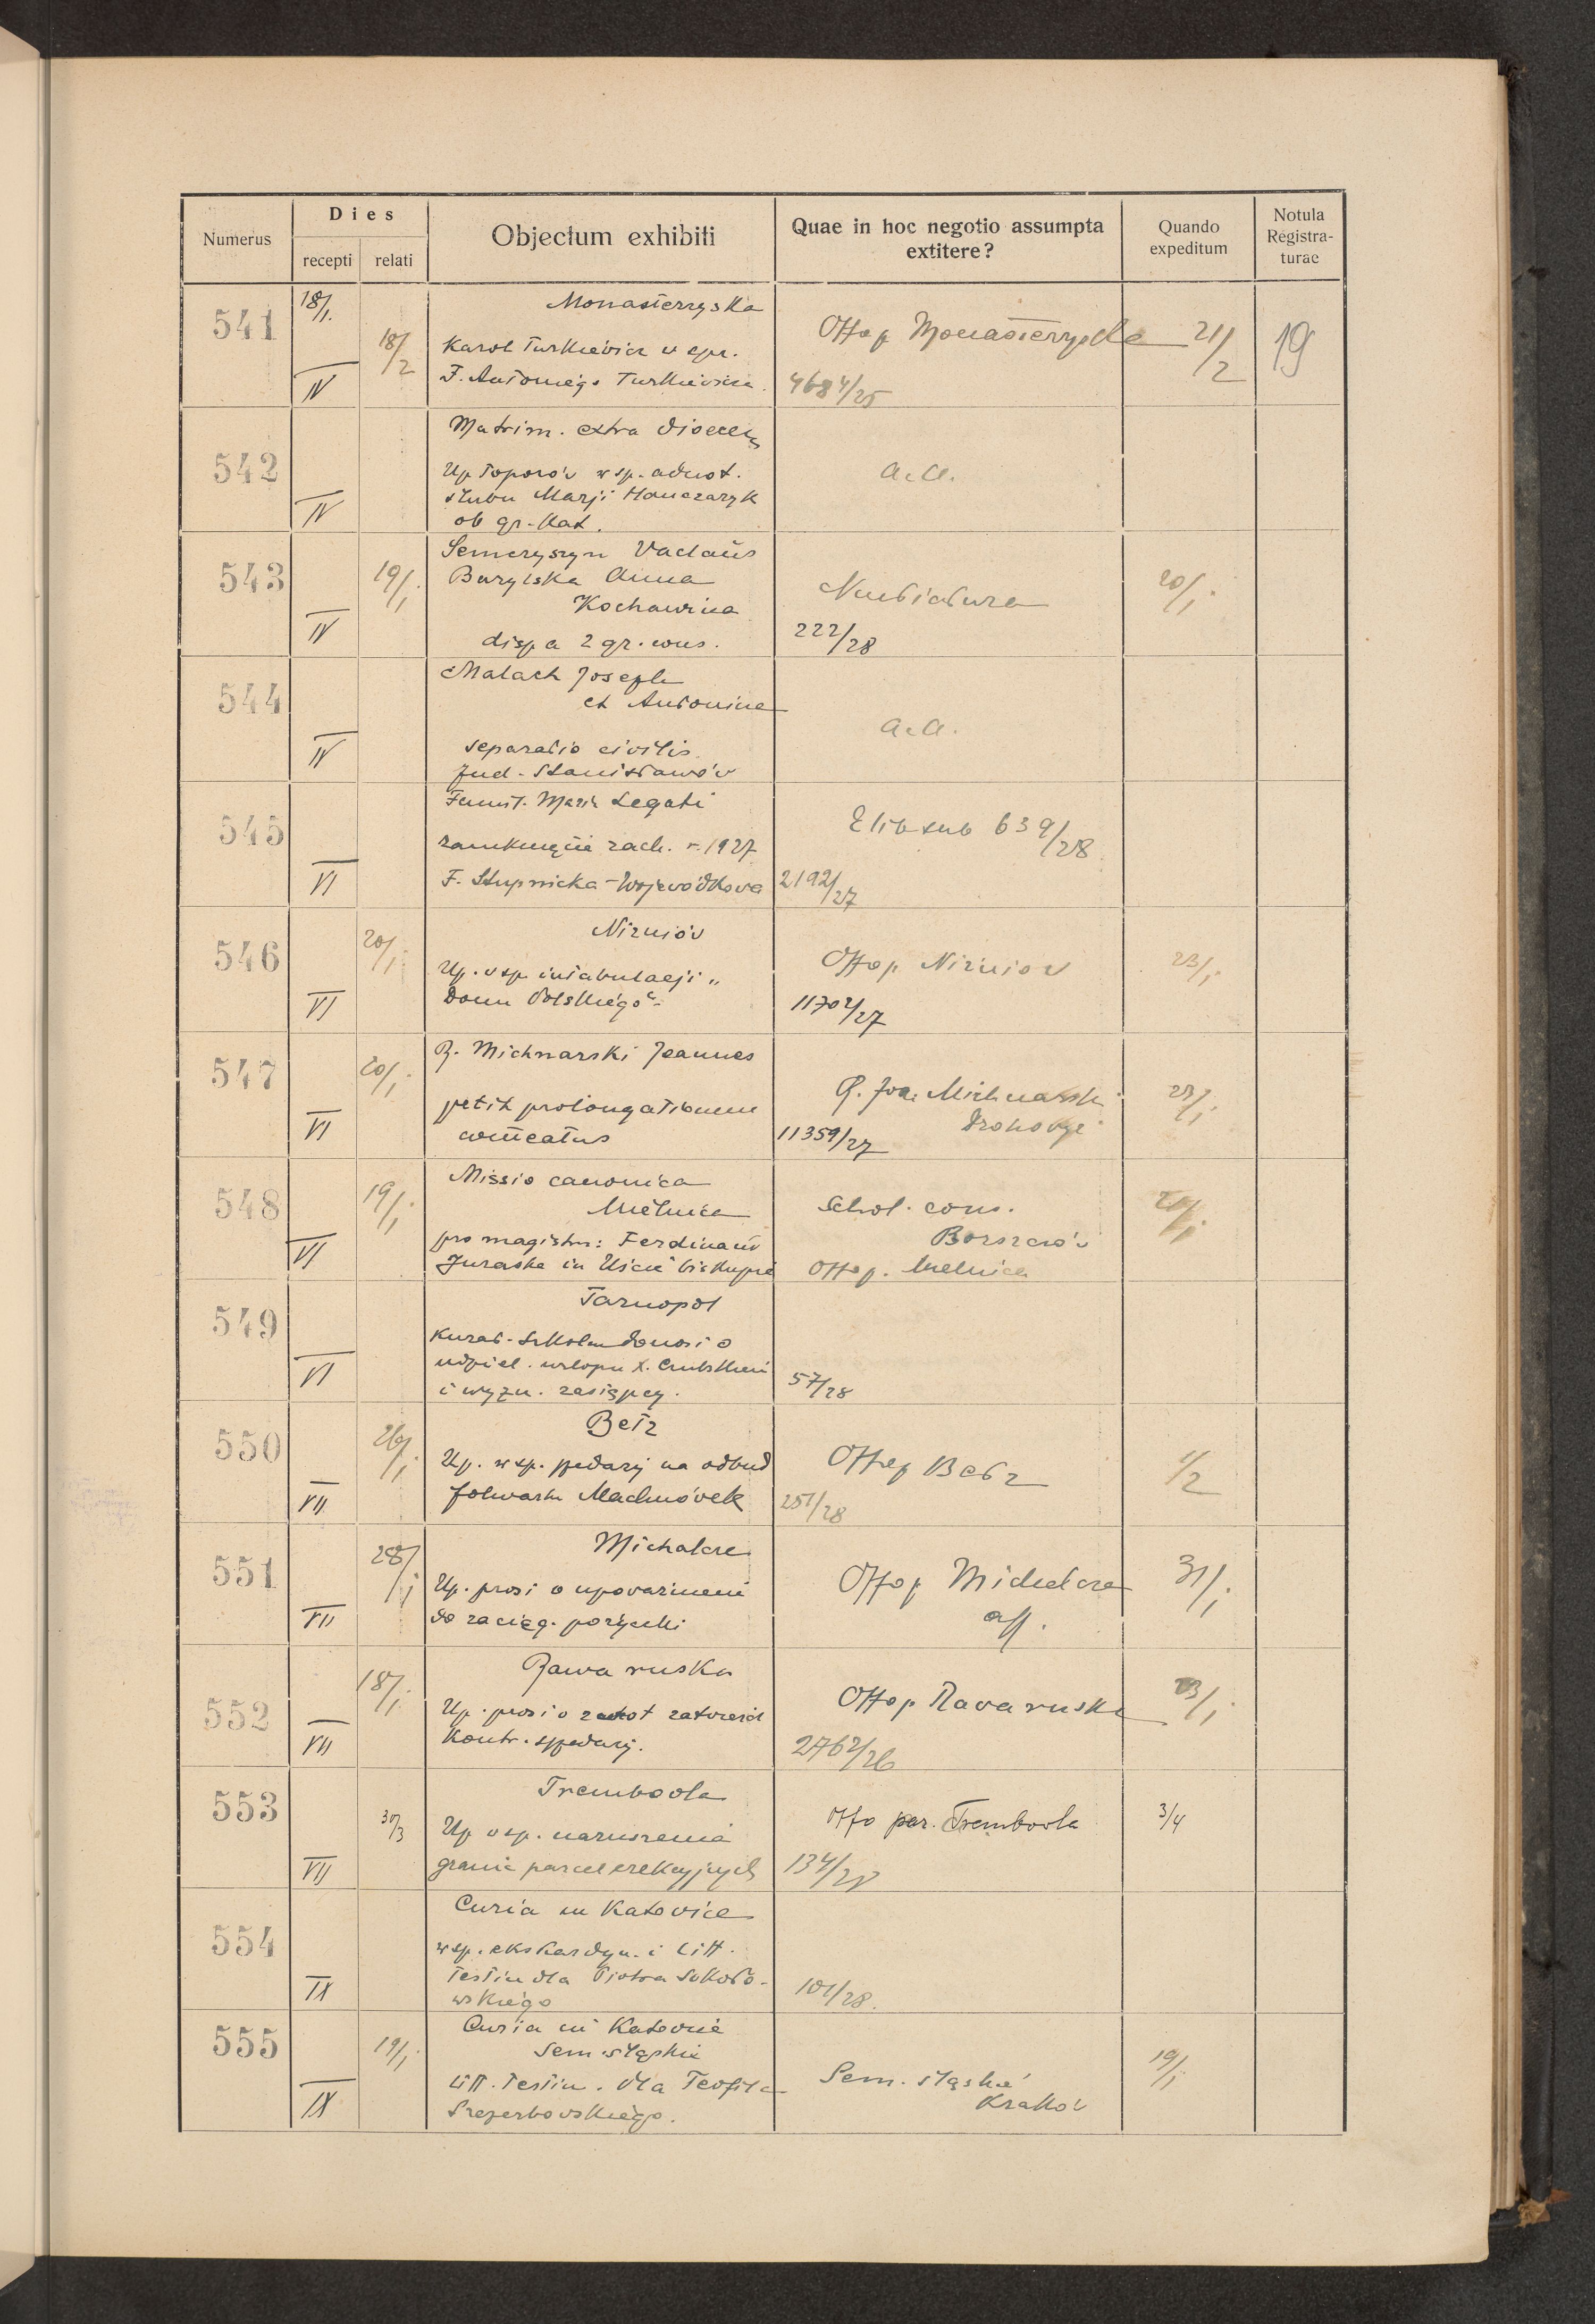 Numerus
Dies
recepti relati
Objectum exhibiti
Quae in hoc negotio assumpta extitere?
Quando expeditum
Notula Registra-turae
541 18/1. IV 18/2
Monasterzyska
Karol Turkiewicz w spr.
F. Antoniego Turkiewicza
Offo p Monasterzyska 21/2 19
4684/25
542 IV
Matrim. extra dioeces
Up. Toporów w sp. adnot.
ślubu Marji Hanczaryk
ob gr-kat.
a.a.
543 IV 19/1.
Semczyszyn Vaclaus
Burylska Anna
Kochawina
disp a 2 gr. cons.
Nuntiatura 20/1.
222/28
544 IV
Malach Joseph
et Antonina
separatio civilis
Jud. Stanisławów
a.a.
545 VI
Legati
zamknięcie rach. r. 1927
F. Stupnicka-Wojewódkowa
Elib sub 639/28
2192/27
546 VI 20/1.
Niżniów
Up. w sp. intabulacji „
Domu Polskiego“
Offo p. Niżniow 23/1.
11702/27
547 VI 20/1.
P. Michnarski Joannes
petit prolongationem
com̄eatus
P. Joa. Michnarski 23/1.
Drohobyc
11359/27
548 VI 19/1.
Missio canonica
Mielnica
pro magistro: Ferdinand
Juraska in Uście biskupie
Schol. cons.
Borszczów
Offo p. Mielnica
549 VI
Tarnopol
Kurat. Szkolne donosi o
udziel. urlopu X.
i wyzn. zastępcy.
57/28
550 VII 26/1.
Bełz
Up. w sp. spedarzy na odbud
folwarku Machnówek
Offo p Bełz 1/2
251/28
551 VII 28/1
Michalcze
Up. prosi o upoważnienie
do zaciąg. pożyczki
Offo p Michalcze 31/1.
aff.
552 VII 18/1.
Rawa ruska
Up. prosi o zwrot zatwierd
kontr. sprzedaży.
Offo p Rawa ruska 23/1.
2762/26
553 VII 30/3
Trembowla
Up w sp. naruszenia
granic parcel erekcyjnych
Offo par. Trembowla 3/4
134/28
554 IX
Curia in Katowice
w sp. ekskardyn. i litt.
testim dla Piotra Sokoło-
wskiego
101/28.
555 IX 19/1.
Curia in Katowice
Sem. śląskie
Litt. testim. dla Teofila
Szczerbowskiego.
Sem. śląskie 19/1.
Kraków